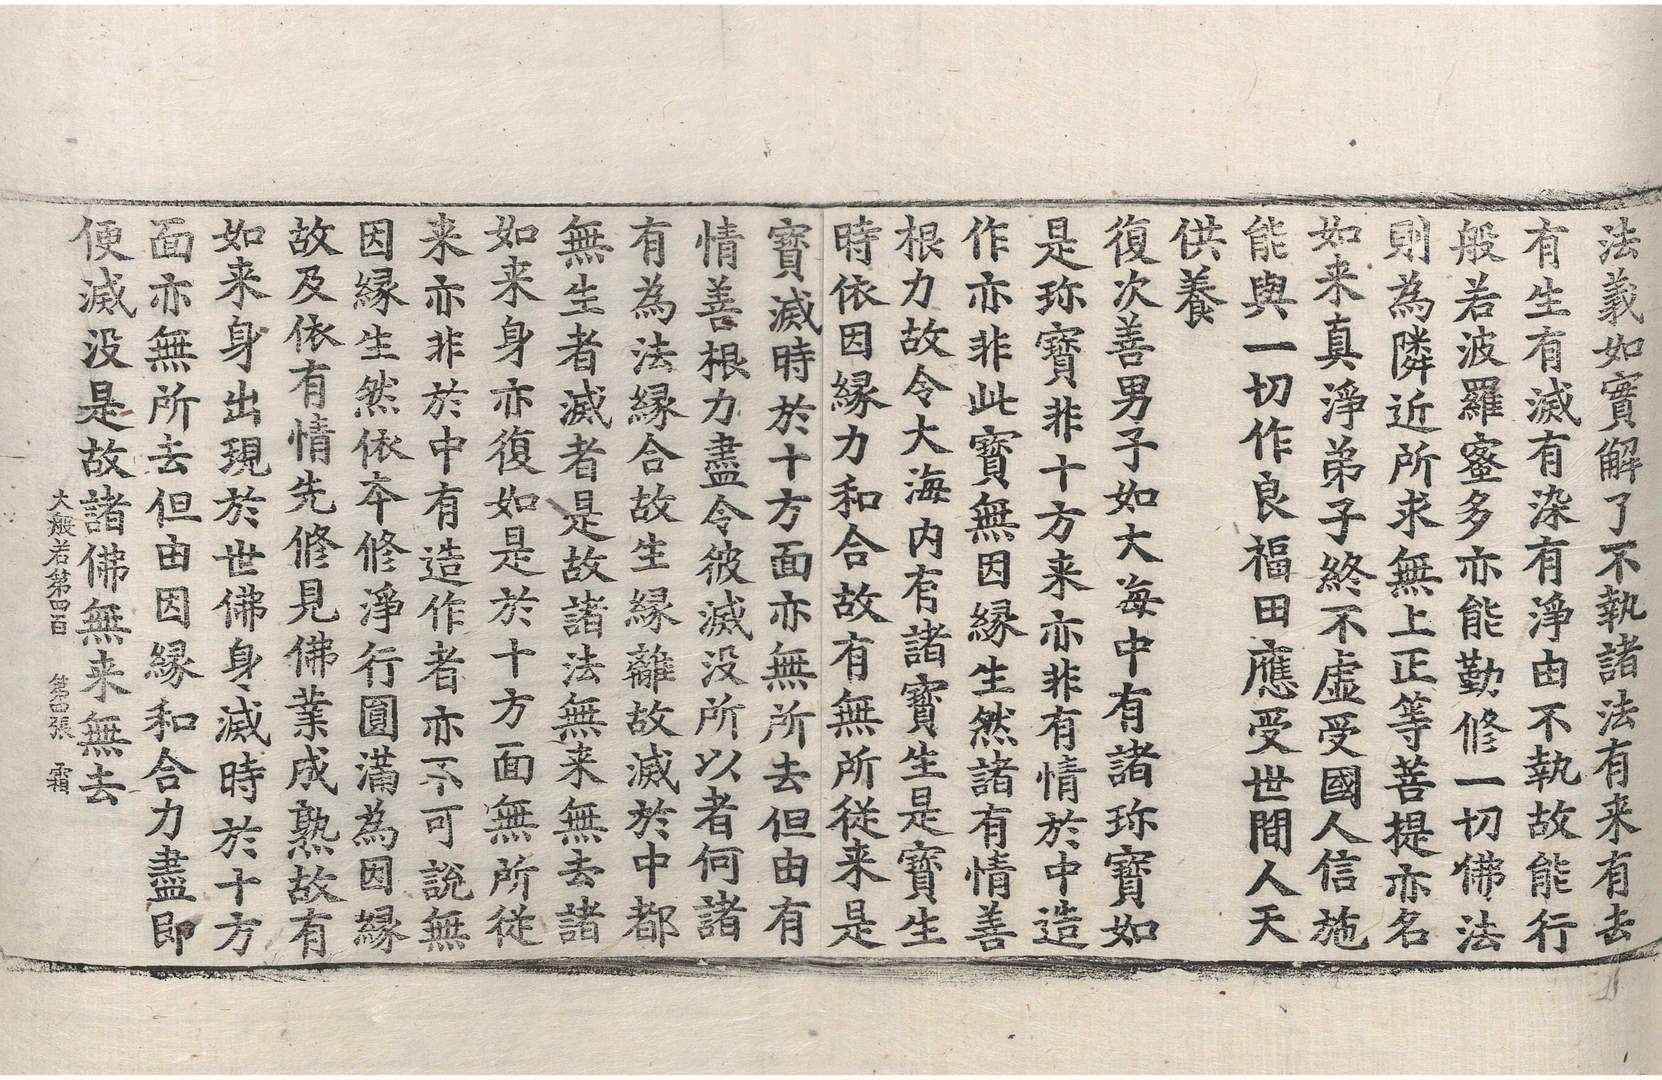 法義如實解了不執諸法有来有去
有生有滅有染有淨由不執故能行
般若波羅蜜多亦能勤修一切佛法
則為隣近所求無上正等菩提亦名
如来真淨弟子終不虛受國人信施
能與一切作良福田應受世間人天
供養
復次善男子如大海中有諸珎寶如
是珎寶非十方来亦非有情於中造
作亦非此寶無因緣生然諸有情善
根力故令大海内有諸寶生是寶生
時依因緣力和合故有無所従来是
寶滅時於十方面亦無所去但由有
情善根力盡令彼滅没所以者何諸
有為法緣合故生緣離故滅於中都
無生者滅者是故諸法無来無去諸
如来身亦復如是於十方面無所従
来亦非於中有造作者亦不可說無
因緣生然依夲修淨行圓滿為因緣
故及依有情先修見佛業成熟故有
如来身出現於世佛身滅時於十方
面亦無所去但由因緣和合力盡即
便滅没是故諸佛無来無去
大般若第四百　第四張　霜